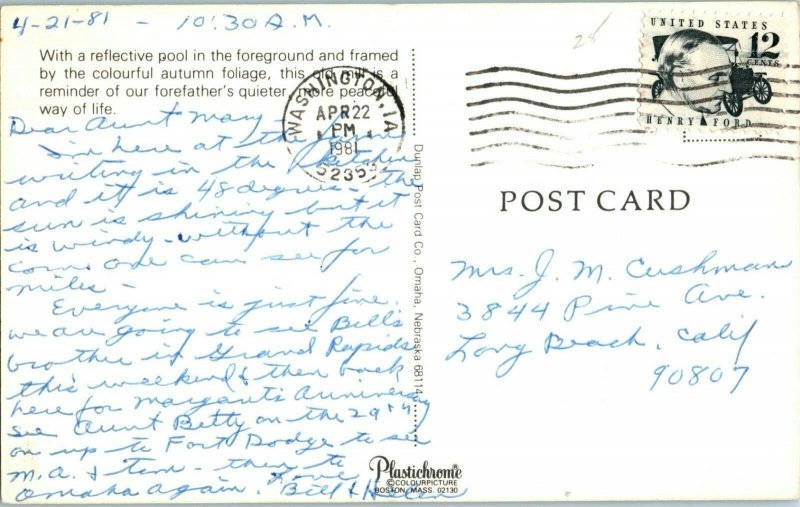 4-21-81 - 10:30 A.M.
With a reflective pool in the foreground and framed
by the colourful autumn foliage, this old mill is a
reminder of our forefather's quieter, more peaceful
way of life.
Dear Aunt Mary -
I'm here at the farm
writing in the kitchen
and it is 48 degrees - the
sun is shining but it
is windy - without the
corn one can see for
miles -
Everyone is just fine.
we are going to see Bill's
brother in Grand Rapids
this weekend & then back
here for Margants Anniversary
see Aunt Betty on the 29th
on up to Fort Dodge to see
M.A. & Tom - then to
Omaha again. Love
Bill & Helen
WASHINGTON, IA
APR 22
PM
1981
52353
Dunlap Post Card Co., Omaha, Nebraska 68114
Plastichrome®
COLOURPICTURE
BOSTON, MASS. 02130
28
UNITED STATES
12
CENTS
HENRY FORD
POST CARD
Mrs. J. M. Cushman
3844 Pine Ave.
Long Beach, Calif
90807